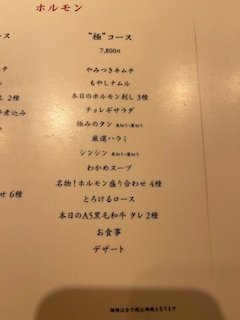 ホルモン
"極"コース
7,800円
やみつきキムチ
もやしナムル
本日のホルモン刺し 3種
チョレギサラダ
極みのタン 厚切り・薄切り
厳選ハラミ
シンシン 厚切り・薄切り
わかめスープ
名物！ホルモン盛り合わせ 4種
とろけるロース
本日のA5黒毛和牛 タレ2種
お食事
デザート
ース
チ
ル
し 2種
煮込み
せ 6種
価格は全て税込価格となります